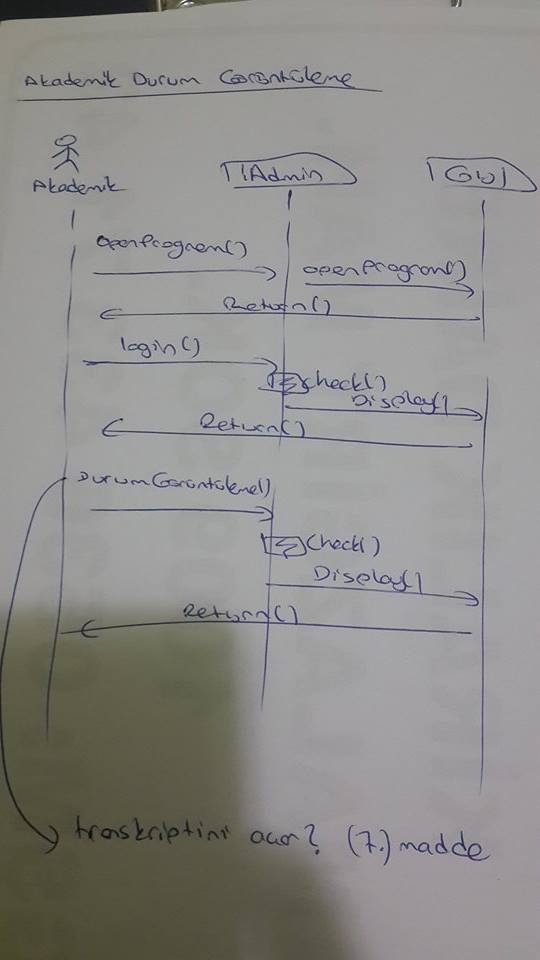 Akademik Durum Görüntüleme
Akademik
:Admin
:GUI
openProgram()
openProgram()
Return()
login()
check()
Display()
Return()
DurumGörüntüleme()
Check()
Display()
Return()
transkriptini acar? (7.) madde